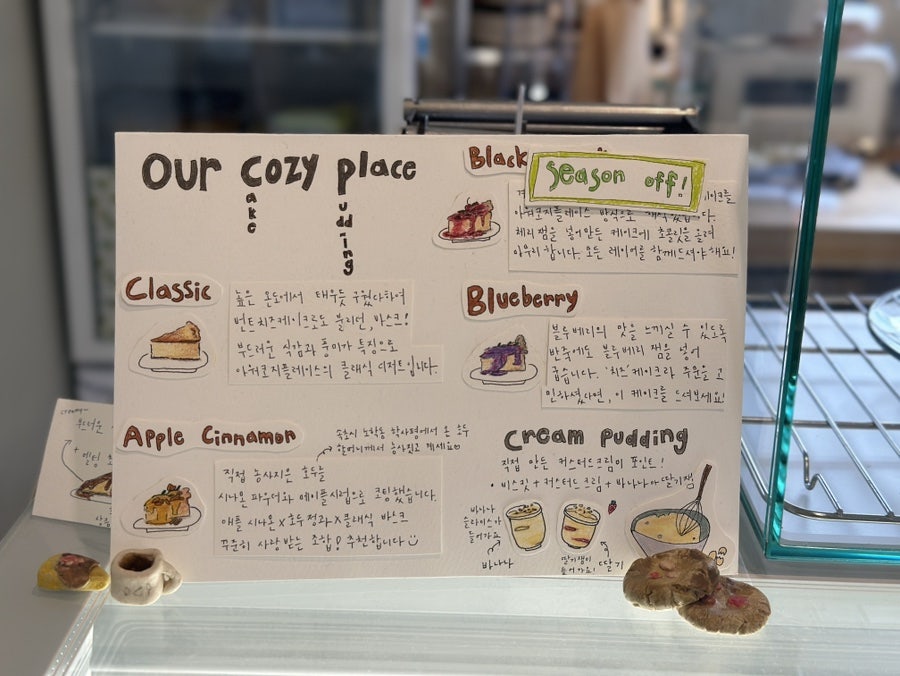 Our cozy place
ake
udding
Classic
높은 온도에서 태우듯 구웠다하여
번트치즈케이크로도 불리던, 바스크!
부드러운 식감과 풍미가 특징으로
아워코지플레이스의 클래식 디저트입니다.
Apple Cinnamon
속초시 노학동 학사평에서 온 호두
할머니께서 농사짓고 계세요♡
직접 농사지은 호두를
시나몬 파우더와 메이플시럽으로 코팅했습니다.
애플 시나몬 x 호두정과 x 클래식 바스크
꾸준히 사랑받는 조합! 추천합니다 ☺
Black
season off!
케이크를
아워코지플레이스 방식으로 했습니다.
체리 잼을 넣어만든 케이크에 초콜릿을 올려
마무리 합니다. 모든 레이어를 함께드셔야 해요!
Blueberry
블루베리의 맛을 느끼실 수 있도록
반죽에도 블루베리 잼을 넣어
굽습니다. '치즈'케이크라 주문을 고
민하셨다면, 이 케이크를 드셔보세요!
Cream pudding
직접 만든 커스터드크림이 포인트!
• 비스킷 + 커스터드 크림 + 바나나 or 딸기잼
바나나
슬라이스가
들어가요
바나나
딸기잼이
들어가요!
딸기
creamy~
부드러운